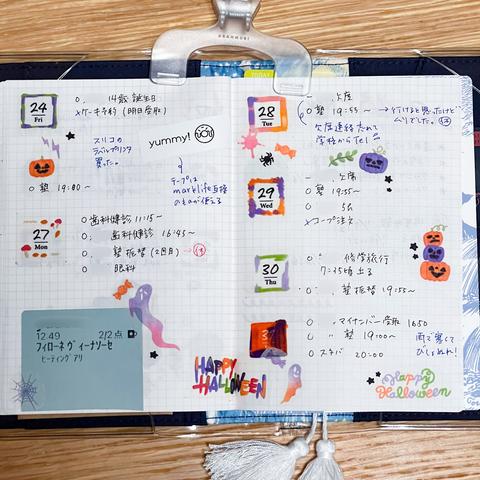 24
Fri
14歳 誕生日
ケーキ予約 (明日受取)
スリコの
ラベルプリンタ
買った。
yummy!
テープは
marklife互換
のものが使える
塾 19:00〜
27
Mon
歯科健診 11:15〜
歯科健診 16:45〜
塾 振替 (2回目)
眼科
12:49
2/2点
フィローネ ヴィーナソーセ
ヒーティング アリ
HAPPY
HALLOWEEN
TODAY
28
Tue
欠席
塾 19:55〜
→行けると思ったけど
ムリでした。
欠席連絡忘れて
学校からTel
29
Wed
欠席
塾 19:55〜
コープ注文
30
Thu
修学旅行
7:45頃 出る
塾振替 19:55〜
マイナンバー受取 1650
塾 19:00〜
スタバ 20:00
雨で寒くて
びしょぬれ!
Happy
Halloween